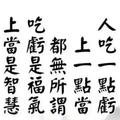 人吃一點虧
上一點當
都無所謂
吃虧是福氣
上當是智慧